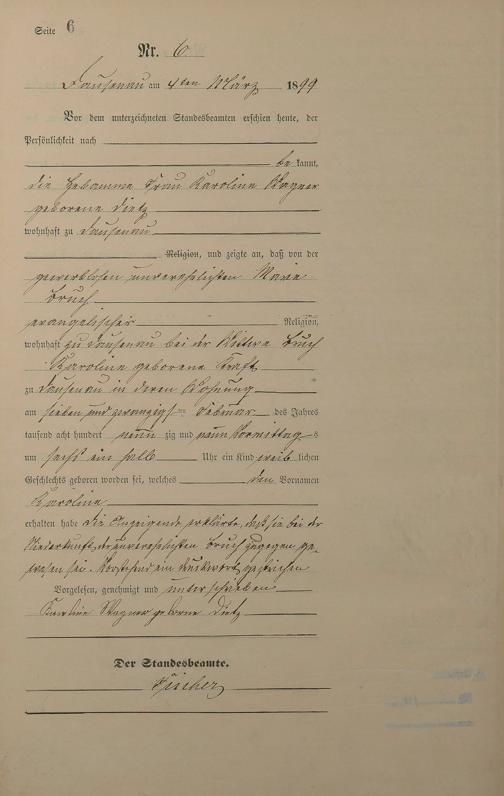 Seite 6
Nr. 6
Dausenau am 4ten März 1899
Vor dem unterzeichneten Standesbeamten erschien heute, der
Persönlichkeit nach
be kannt,
die Hebamme Frau Karoline Wagner
geborene Dietz
wohnhaft zu Dausenau
Religion, und zeigte an, daß von der
gewerblosen unverehelichten Marie
Bruch
evangelischer Religion,
wohnhaft zu Dausenau bei der Wittwe Bruch
Karoline geborene Kraft
zu Dausenau in deren Wohnung
am sieben und zwanzigsten Februar des Jahres
tausend acht hundert neun zig und neun Vormittag s
um sechs ein halb Uhr ein Kind weib lichen
Geschlechts geboren worden sei, welches den Vornamen
Karoline
erhalten habe die Anzeigende erklärte, daß sie bei der
Niederkunft der unverehelichten Bruch zugegen ge-
wesen sei. Vorstehend ein Druckwort gestrichen
Vorgelesen, genehmigt und unterschrieben
Karoline Wagner geborne Dietz
Der Standesbeamte.
Fischer